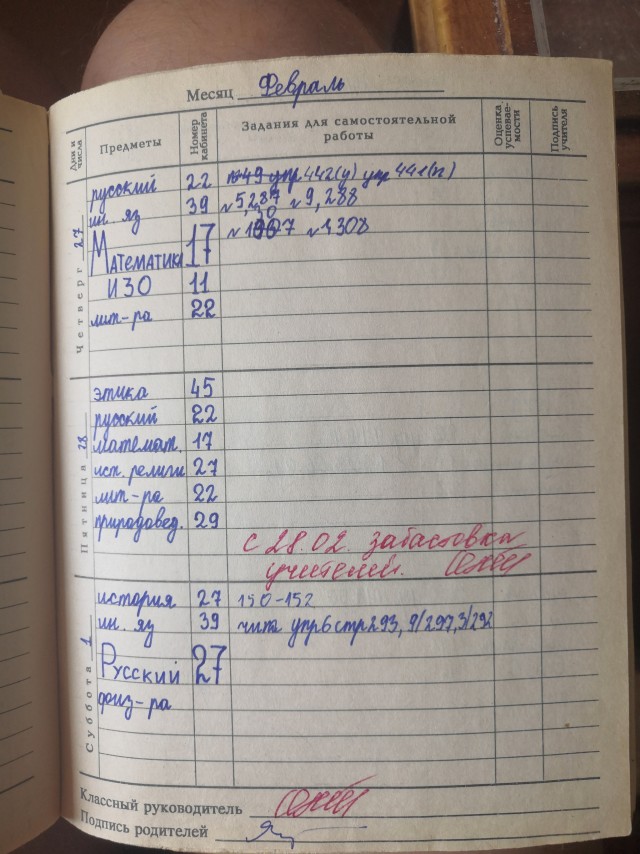 Месяц Февраль
Дни и числа Предметы Номер кабинета Задания для самостоятельной работы Оценка успеваемости Подпись учителя
Четверг 27
русский 22 упр 442(у) упр 441(п)
ин. яз 39 N 5,287 N 9, 288
Математика 17 17
ИЗО 11
лит-ра 22
Пятница 28
этика 45
русский 22
математ. 17
ист. религи 27
лит-ра 22
природовед. 29
С 28.02. забастовка
учителей.
Суббота 1
история 27 150-152
ин. яз 39 чита упр6 стр293, 9/297,3/292
Русский 27
физ-ра
Классный руководитель
Подпись родителей